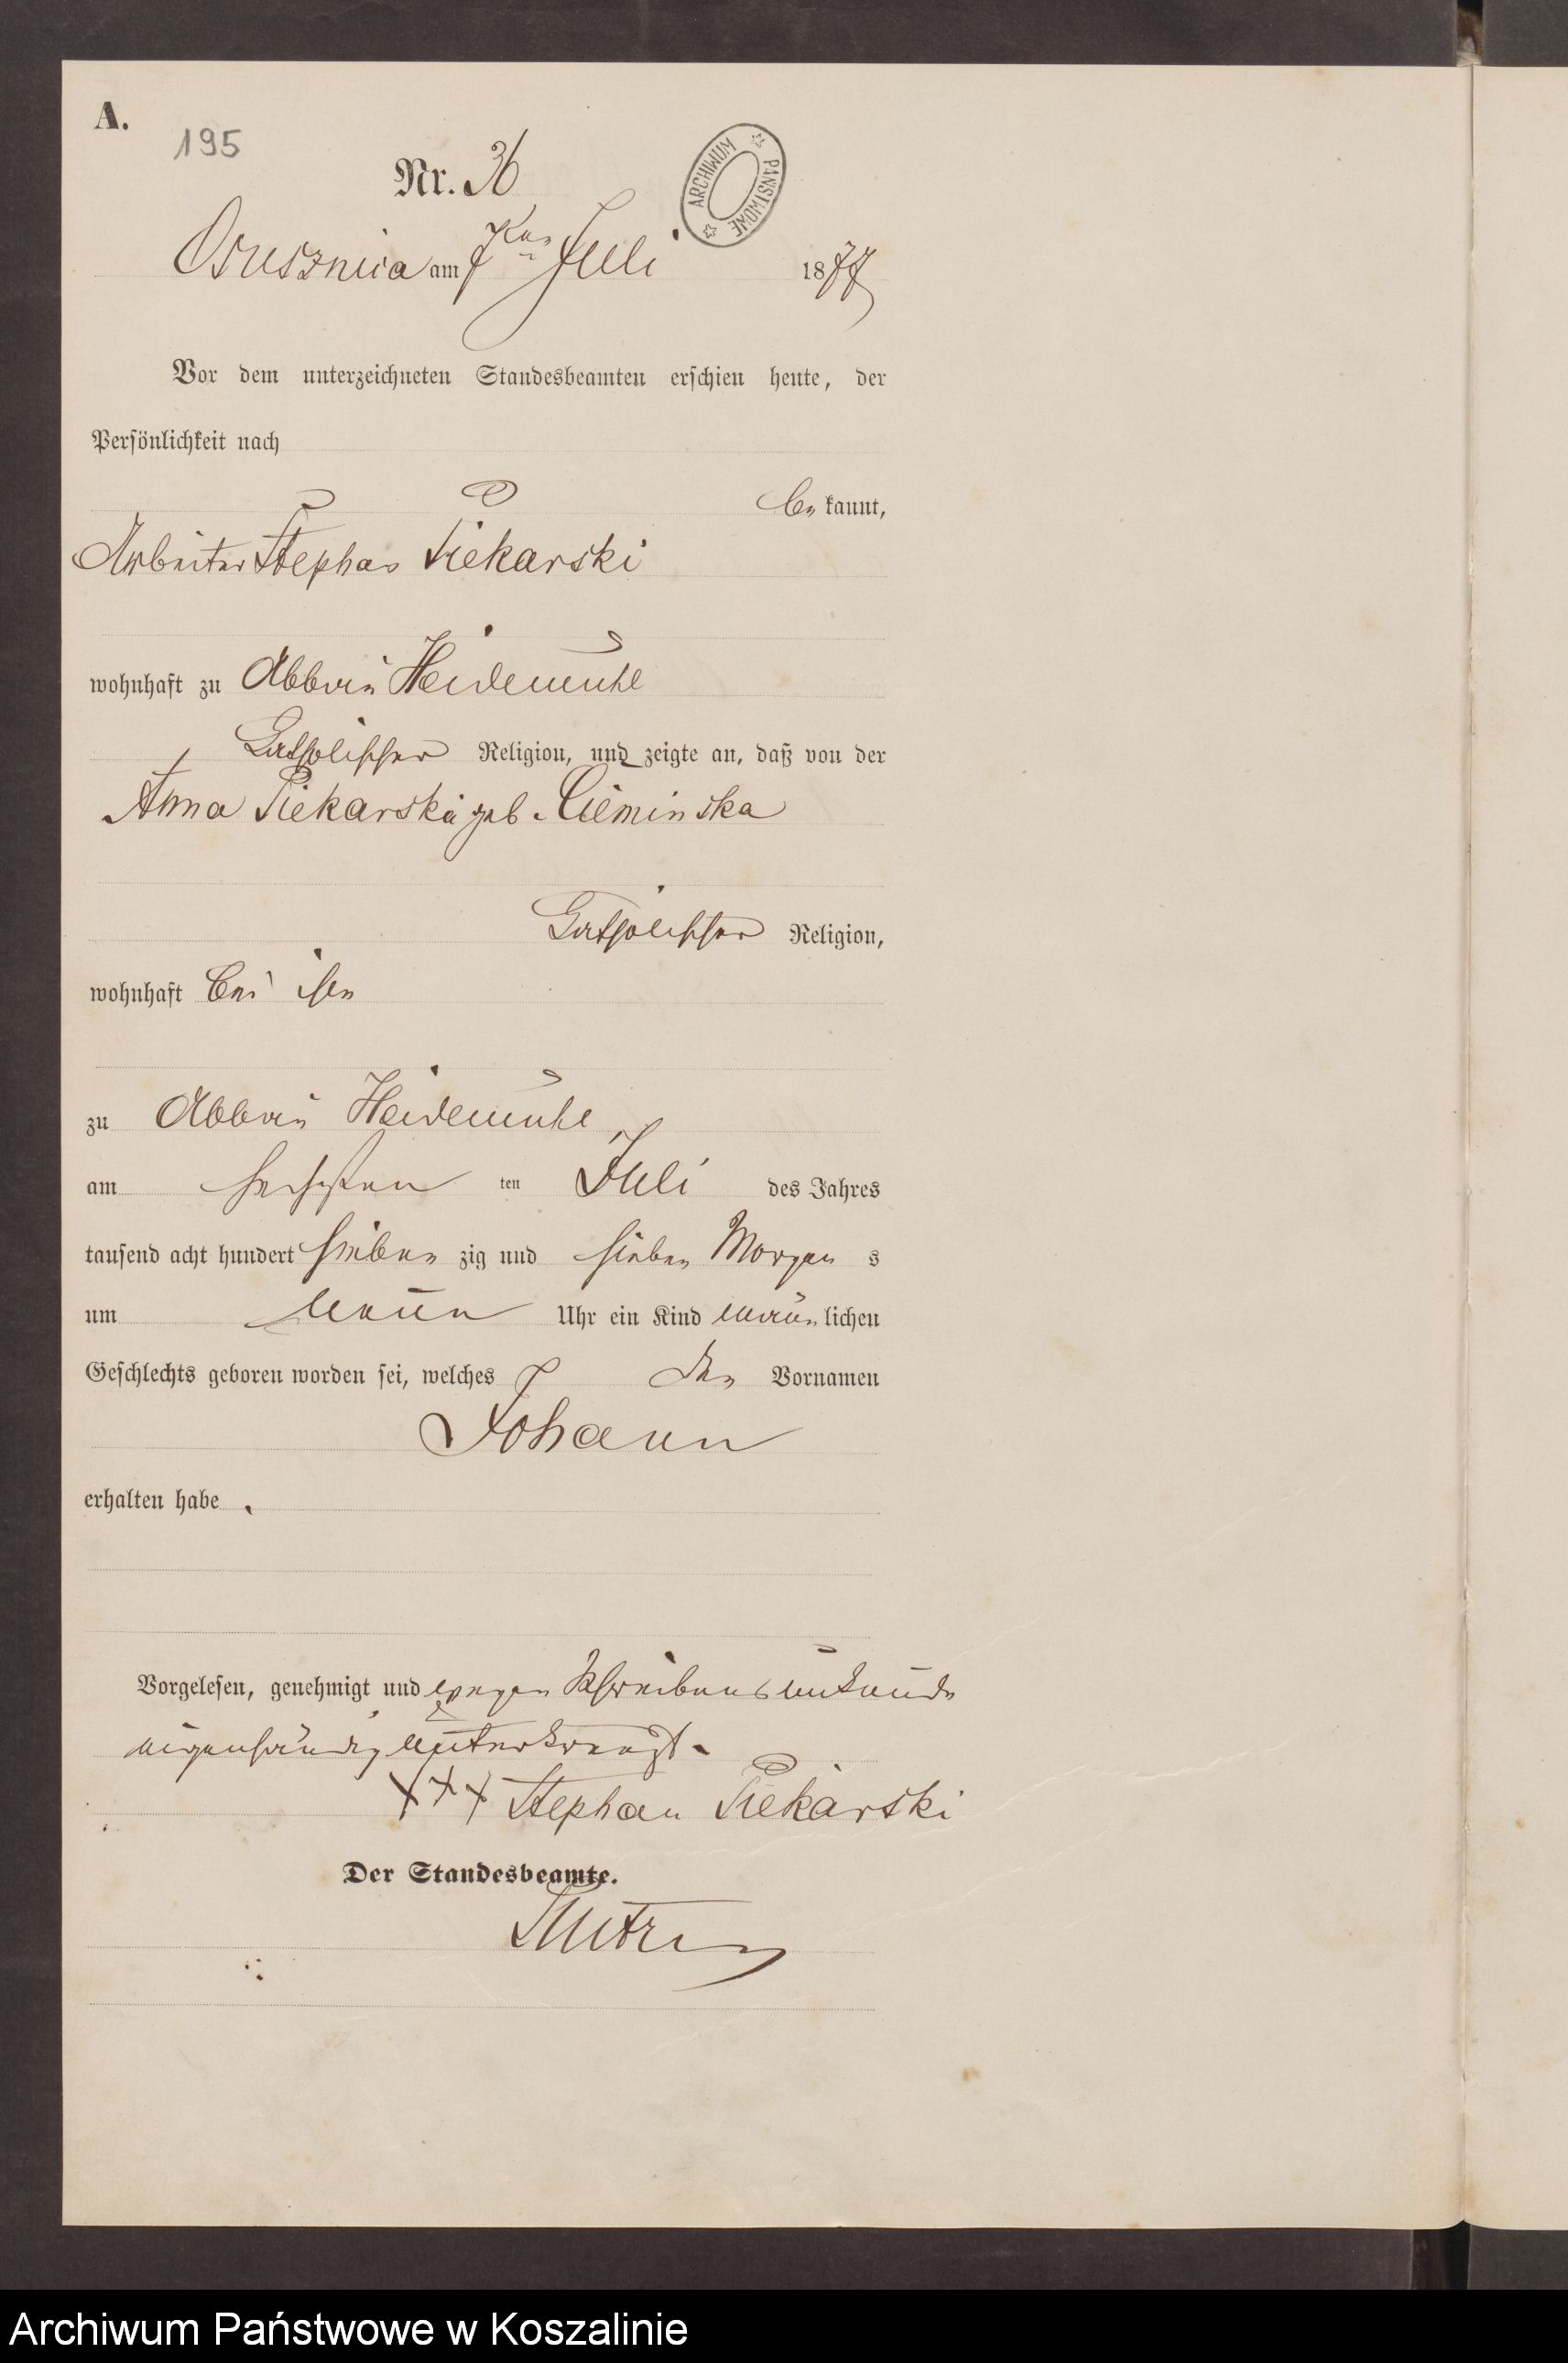 A.
195
Nr. 36
ARCHIWUM PAŃSTWOWE
Ossusznica am 7ten Juli 1877
Vor dem unterzeichneten Standesbeamten erschien heute, der
Persönlichkeit nach
bekannt,
Arbeiter Stephan Piekarski
wohnhaft zu Abbau Heidemühl
katholischer Religion, und zeigte an, daß von der
Anna Piekarska geb. Cieminska
katholischer Religion,
wohnhaft bei ihm
zu Abbau Heidemühl
am sechsten ten Juli des Jahres
tausend acht hundert sieben zig und sieben Morgen s
um neun Uhr ein Kind männlichen
Geschlechts geboren worden sei, welches den Vornamen
Johann
erhalten habe.
Vorgelesen, genehmigt und wegen Schreibensunkunde
eigenhändig unterkreuzt.
XXX Stephan Piekarski
Der Standesbeamte.
Archiwum Państwowe w Koszalinie